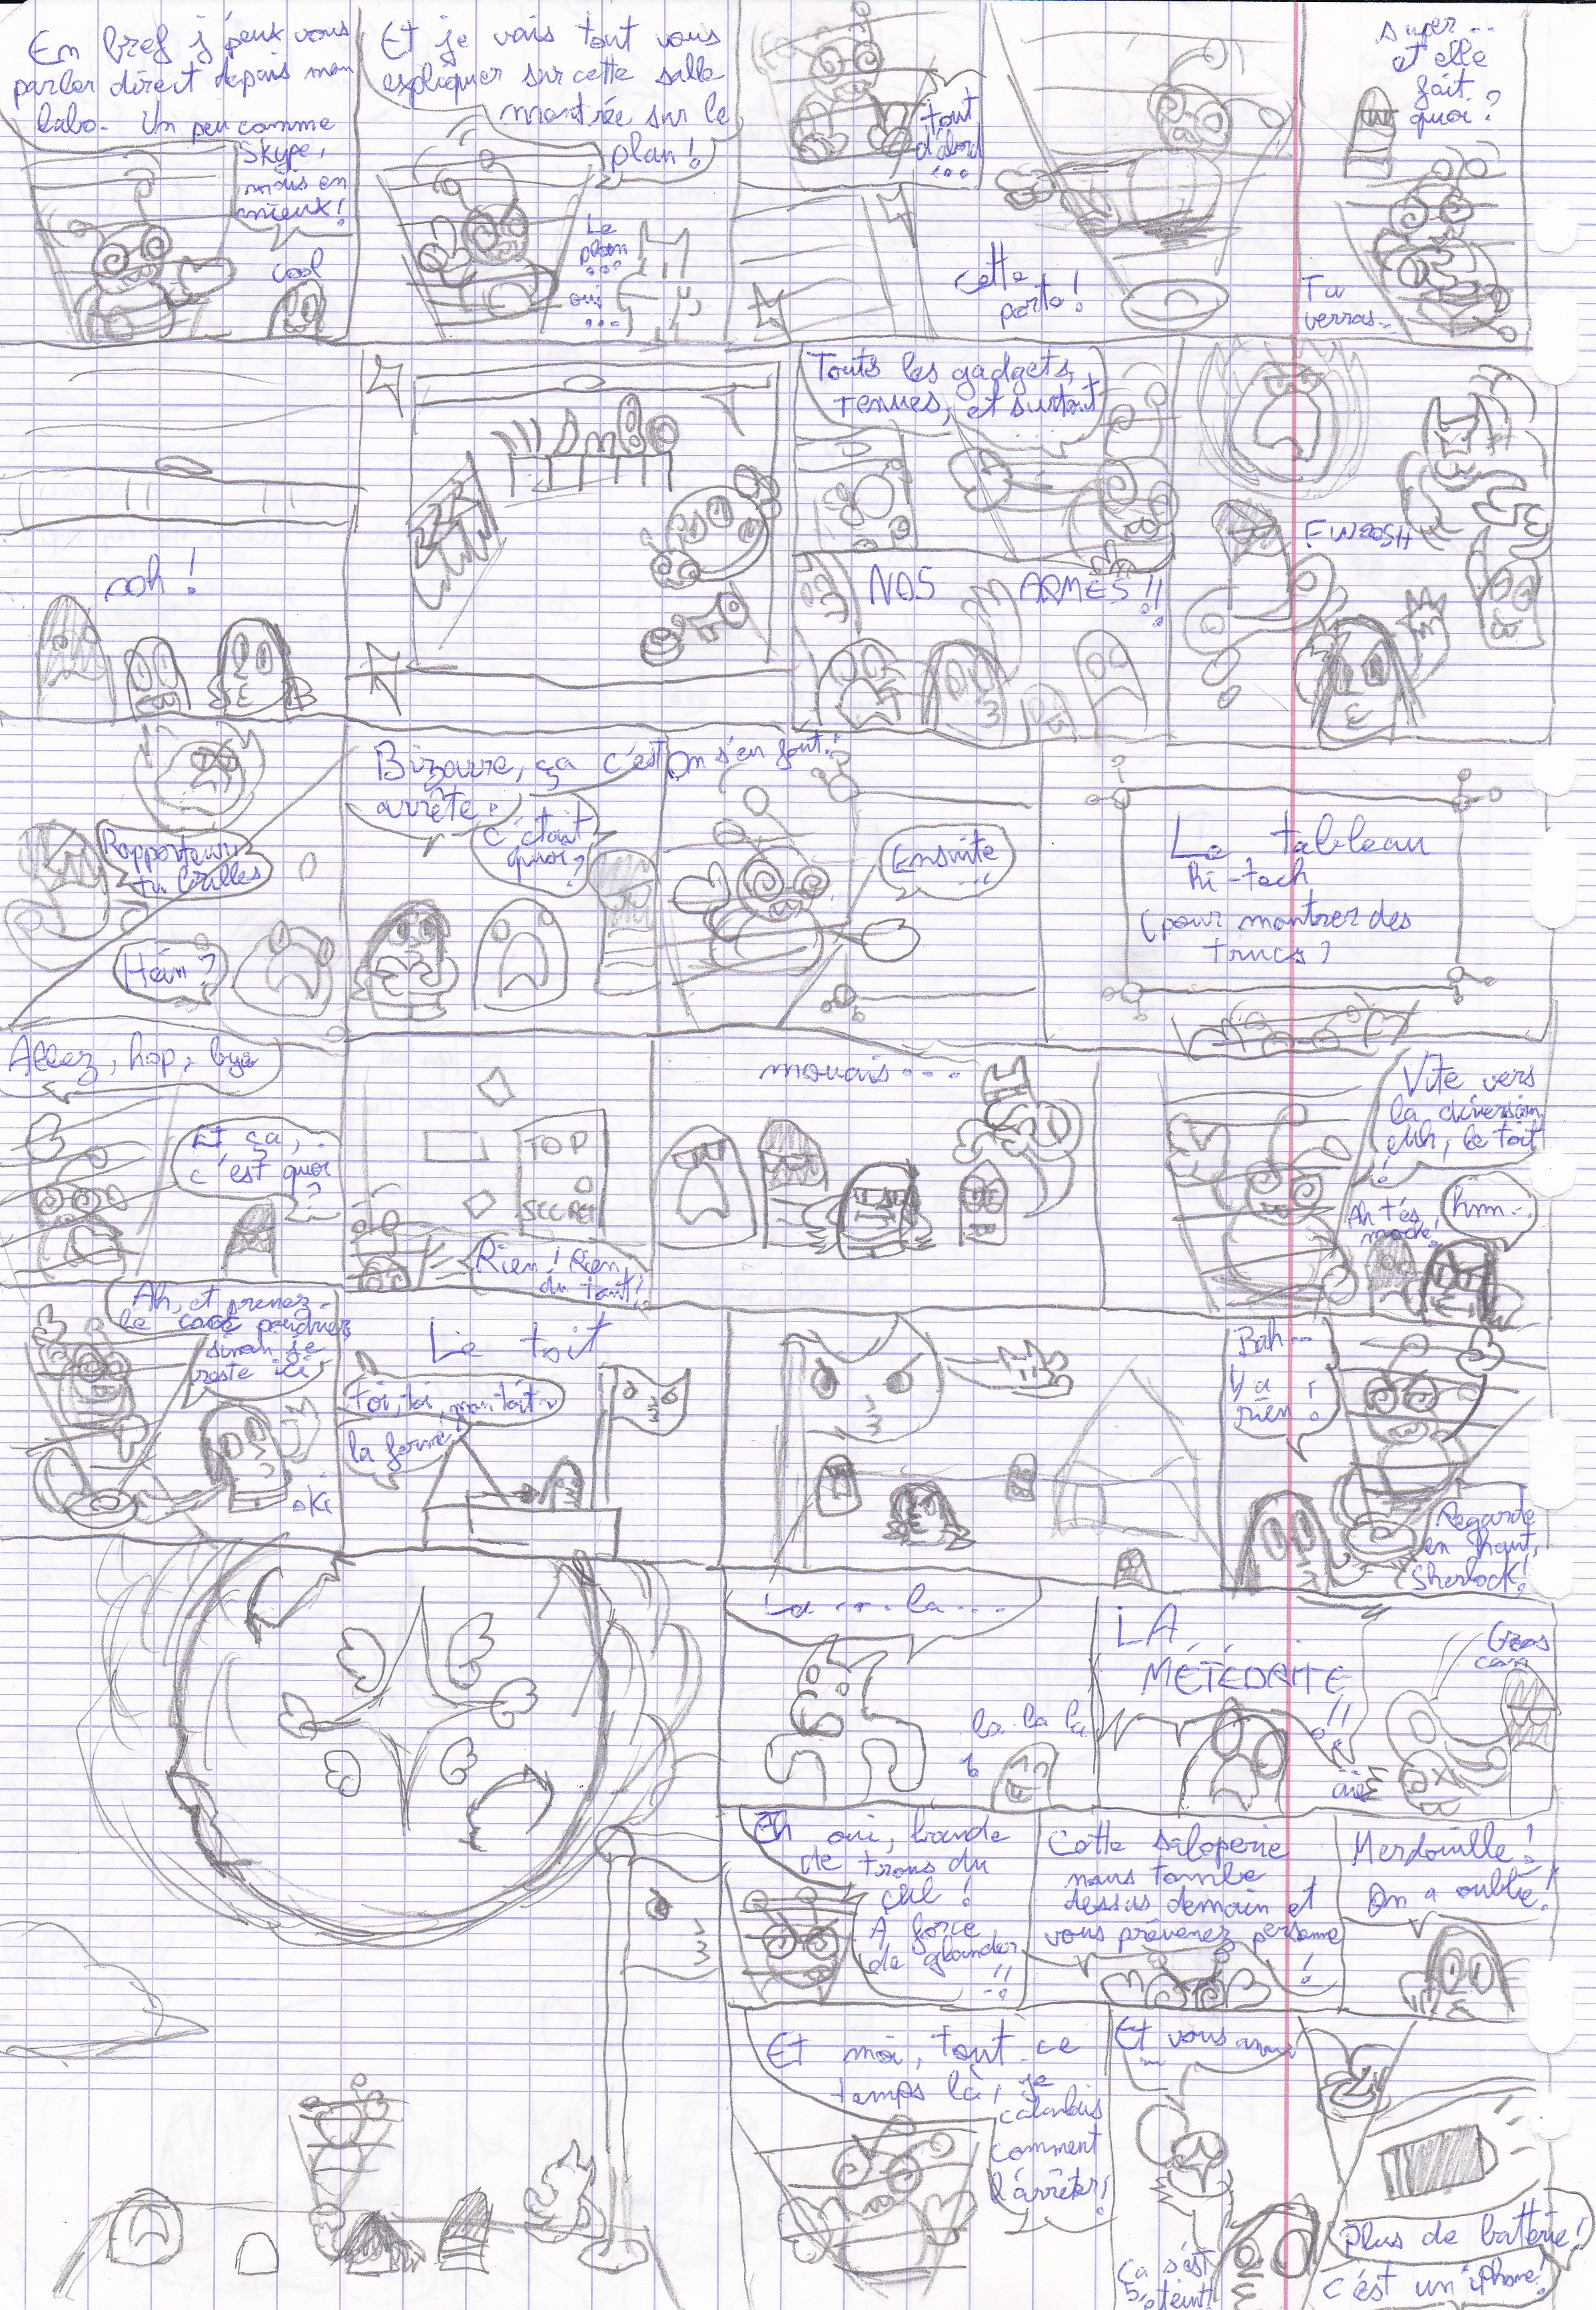 En bref j'peux vous
parler direct depuis mon
labo. Un peu comme
Skype,
mais en
mieux!
cool
Et je vais tout vous
expliquer sur cette salle
montrée sur le
plan!
Le
plan
...
oui
...
tout
d'abord
...
cette
porte!
super...
et elle
fait
quoi?
Tu
verras..
ooh!
Touts les gadgets,
tenues, et surtout
NOS ARMES!!
FWOOSH
Rapporteur,
tu brilles
Hein?
Bizarre, ça s'est
arrêté!
C'était
quoi?
On s'en fout!
Ensuite
...
Le tableau
hi-tech
(pour montrer des
trucs)
Allez, hop, bye
Et ça,
c'est quoi
?
TOP
SECRET
Rien! Rien
du tout!
mouais...
Vite vers
la diversion,
euh, le toit
!
Ah t'es
moche!
hmm..
Ah, et prenez-
le code pendrier
sinon je
reste ici
oki
Le toit
Toi, toi, mon toit
la ferme!
Bah...
Y a
rien!
Regarde
en haut,
Sherlock!
La... la...
la la la
LA
MÉTÉORITE
!!
Gros
con
aïe
Eh oui, bande
de trous du
cul!
A force
de glander
!!
Cette saloperie
nous tombe
dessus demain et
vous prévenez personne
!
Merdouille!
On a oublié!
Et moi, tout ce
temps là, je
calculais
comment
l'arrêter!
Et vous
Ça s'est
éteint!
Plus de batterie!
C'est un iPhone!